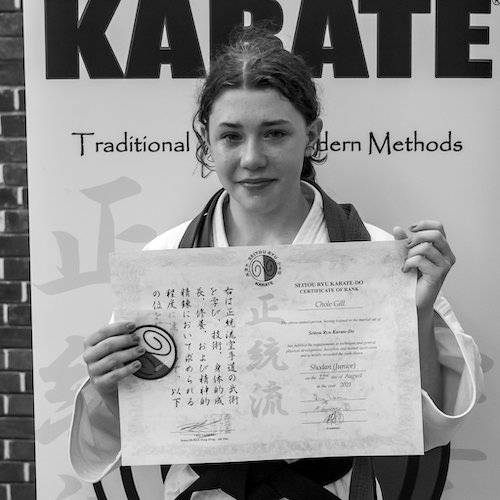 KARATE
Traditional
dern Methods
正統流
SEITOU RYU
KARATE
SEITOU RYU KARATE-DO
CERTIFICATE OF RANK
Chole Gill
The above named person, having trained in the martial art of
Seitou Ryu Karate-Do
has fulfilled the requirements in technique and general
physical development, discipline and mental unification
and is hereby awarded the rank shown
Shodan (Junior)
on the 22nd day of August
in the year 2021
正統流
右は正統流空手道の武術
を学び、技術、身体的成
長、修養、および精神的
精練において求められる
程度に
以下
の位を